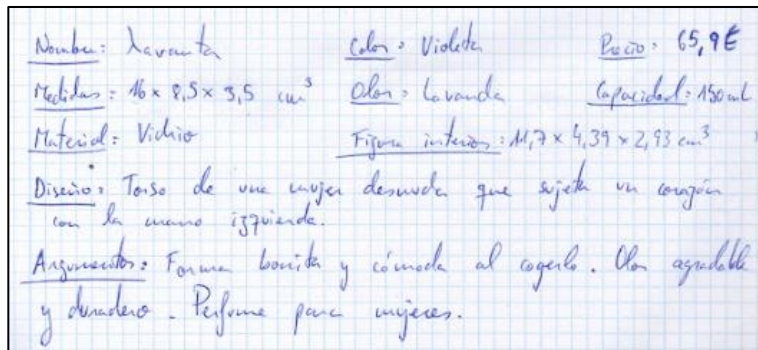 Nombre: Lavanta Color: Violeta Precio: 65,9€
Medidas: 16 x 8,5 x 3,5 cm³ Olor: Lavanda Capacidad: 150 ml
Material: Vidrio Figura interior: 11,7 x 4,39 x 2,93 cm³
Diseño: Torso de una mujer desnuda que sujeta un corazón
con la mano izquierda.
Argumentos: Forma bonita y cómoda al cogerlo. Olor agradable
y duradero. Perfume para mujeres.